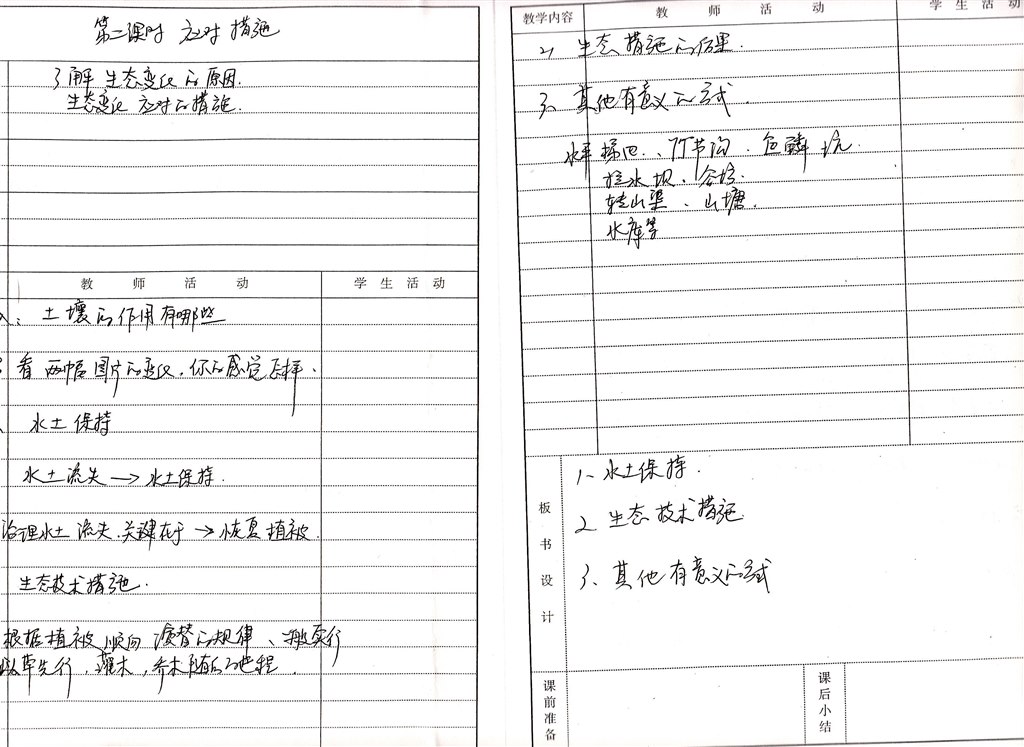 第二课时 应对措施
了解生态变化的原因.
生态变化应对的措施.
教师活动 学生活动
入: 土壤的作用有哪些
看两幅图片的变化,你的感觉怎样.
水土保持
水土流失→水土保持.
治理水土流失.关键在于→恢复植被.
生态技术措施.
根据植被顺向演替的规律、一般实行
以草先行,灌木,乔木随后的过程.
教学内容 教师活动 学生活动
2、生态措施的后果.
3、其他有意义的方式.
水平梯田、竹节沟.鱼鳞坑.
拦水坝、谷坊.
转山渠、山塘.
水库等
板书设计
1、水土保持.
2 生态技术措施
3、其他有意义的方式
课前准备
课后小结